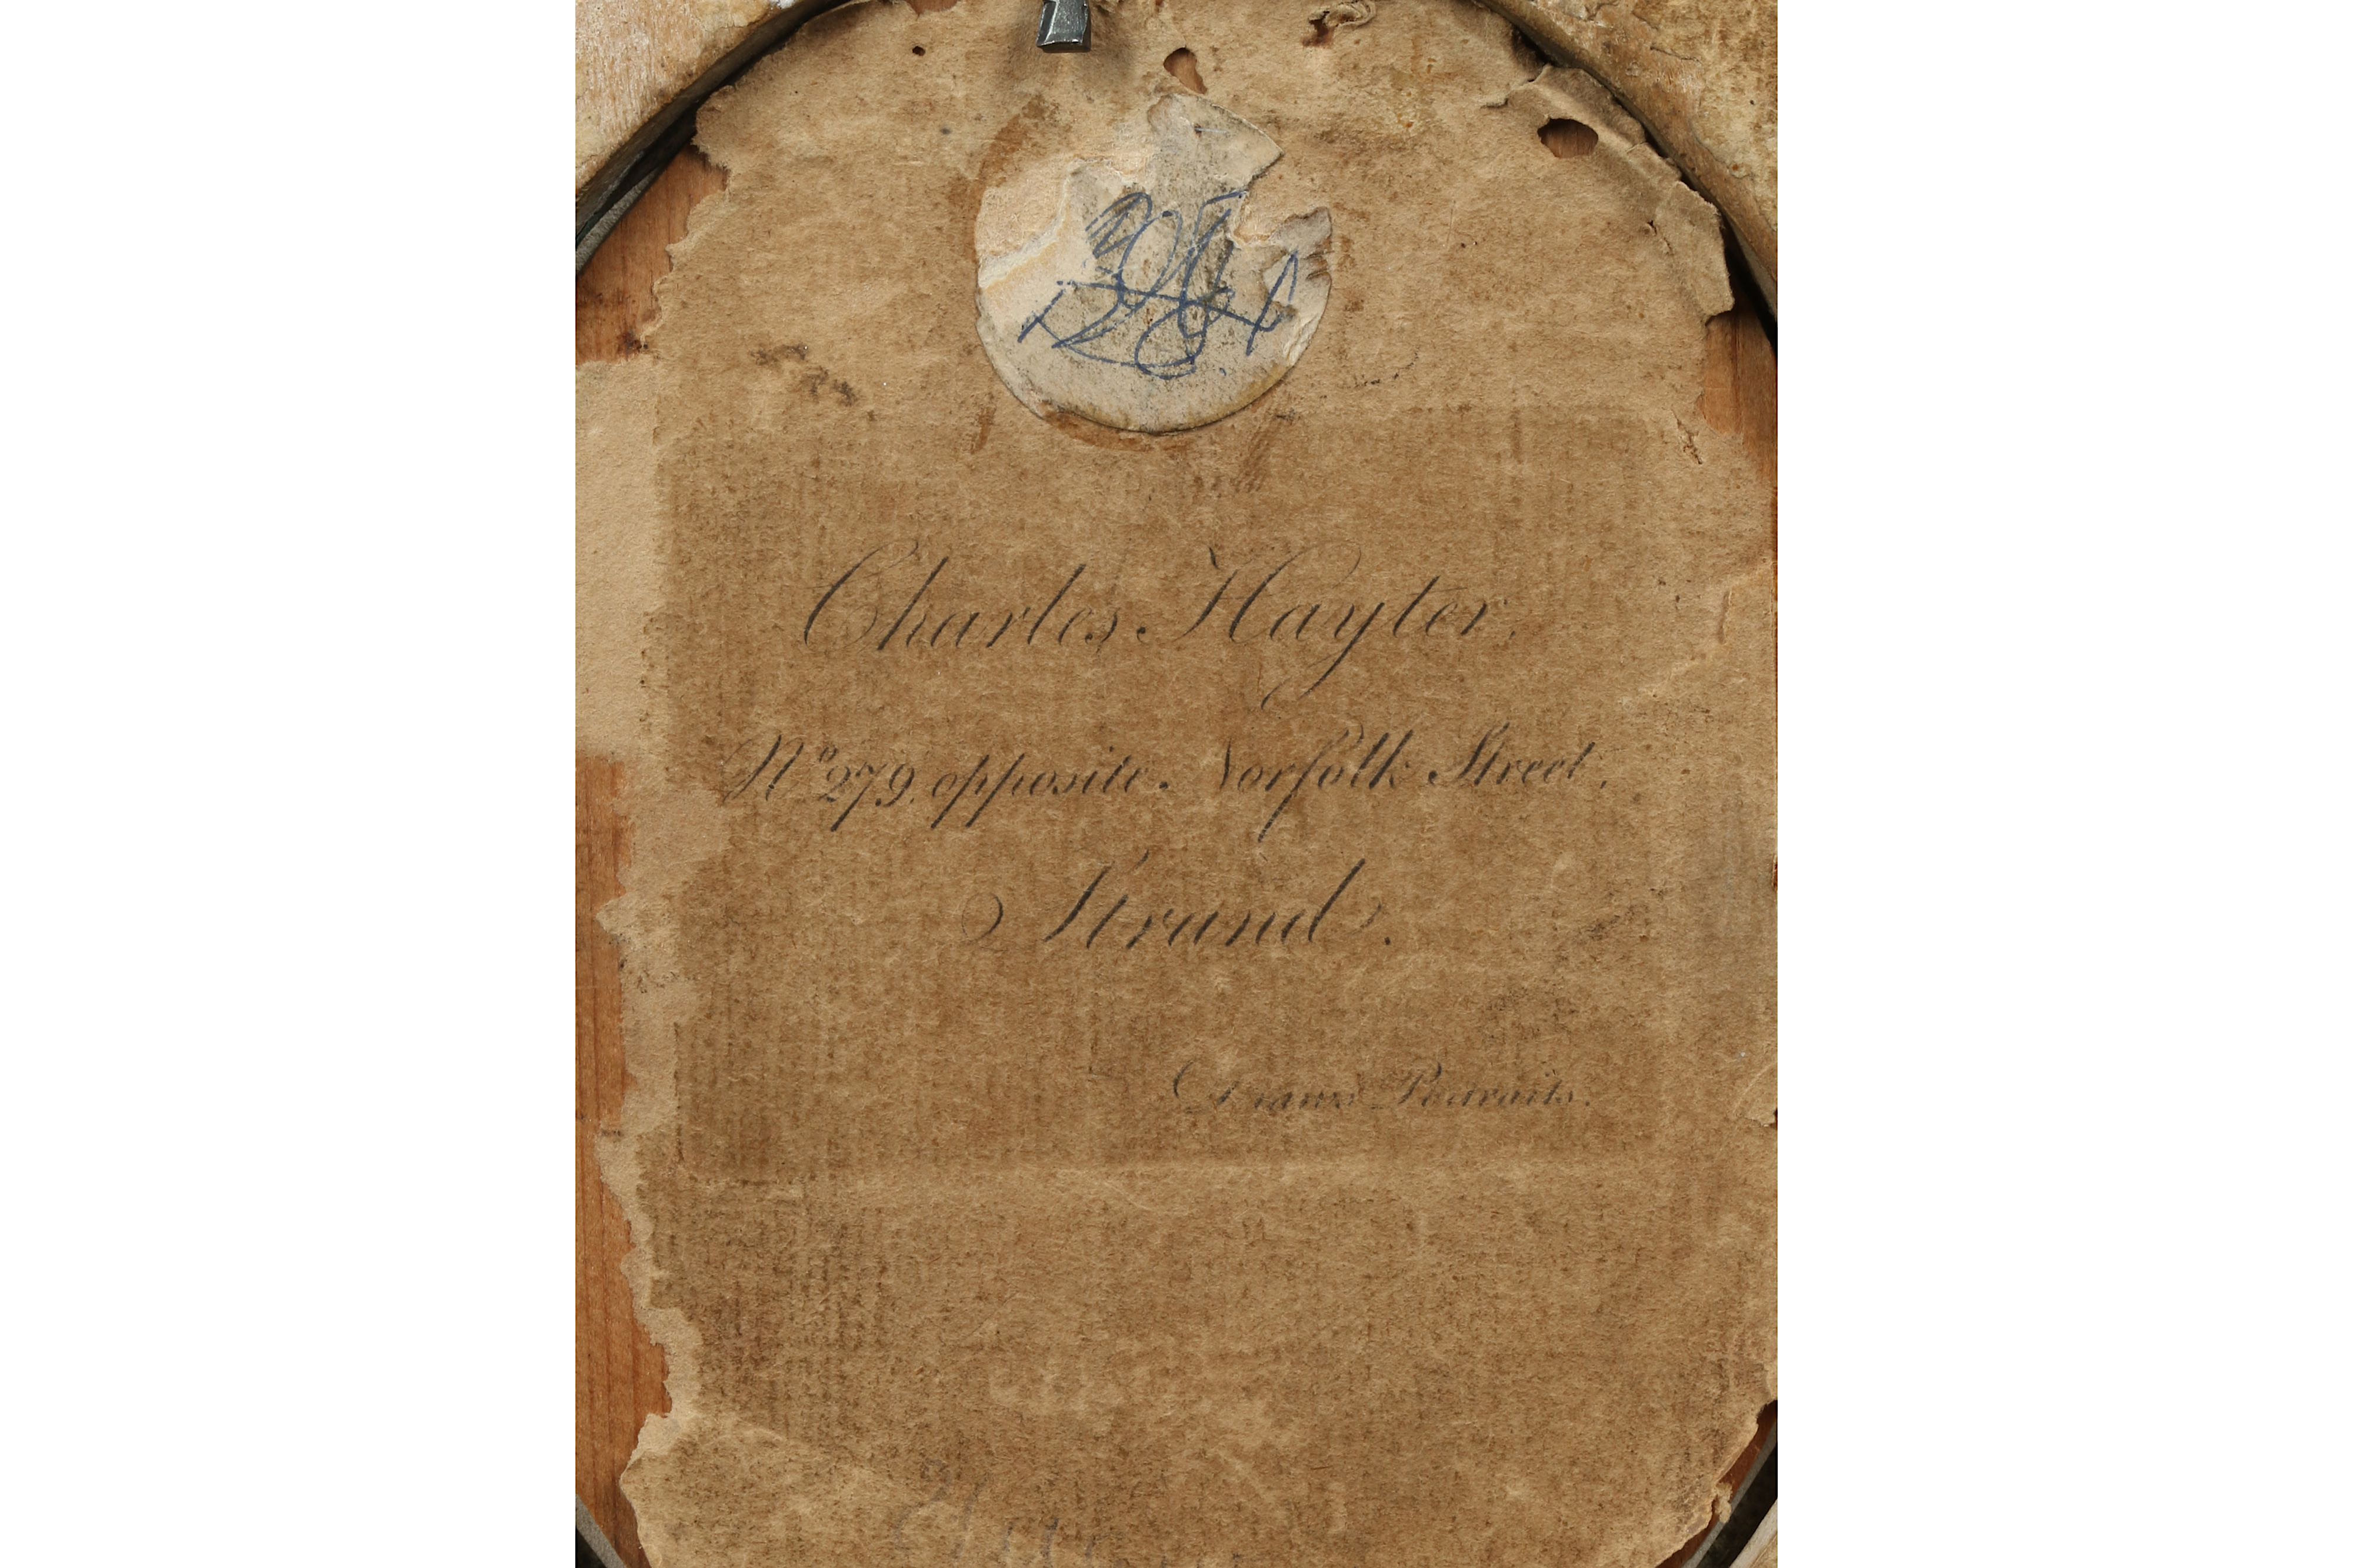 Charles Hayter,
Nº 279, opposite Norfolk Street,
Strand.
Draws Portraits.